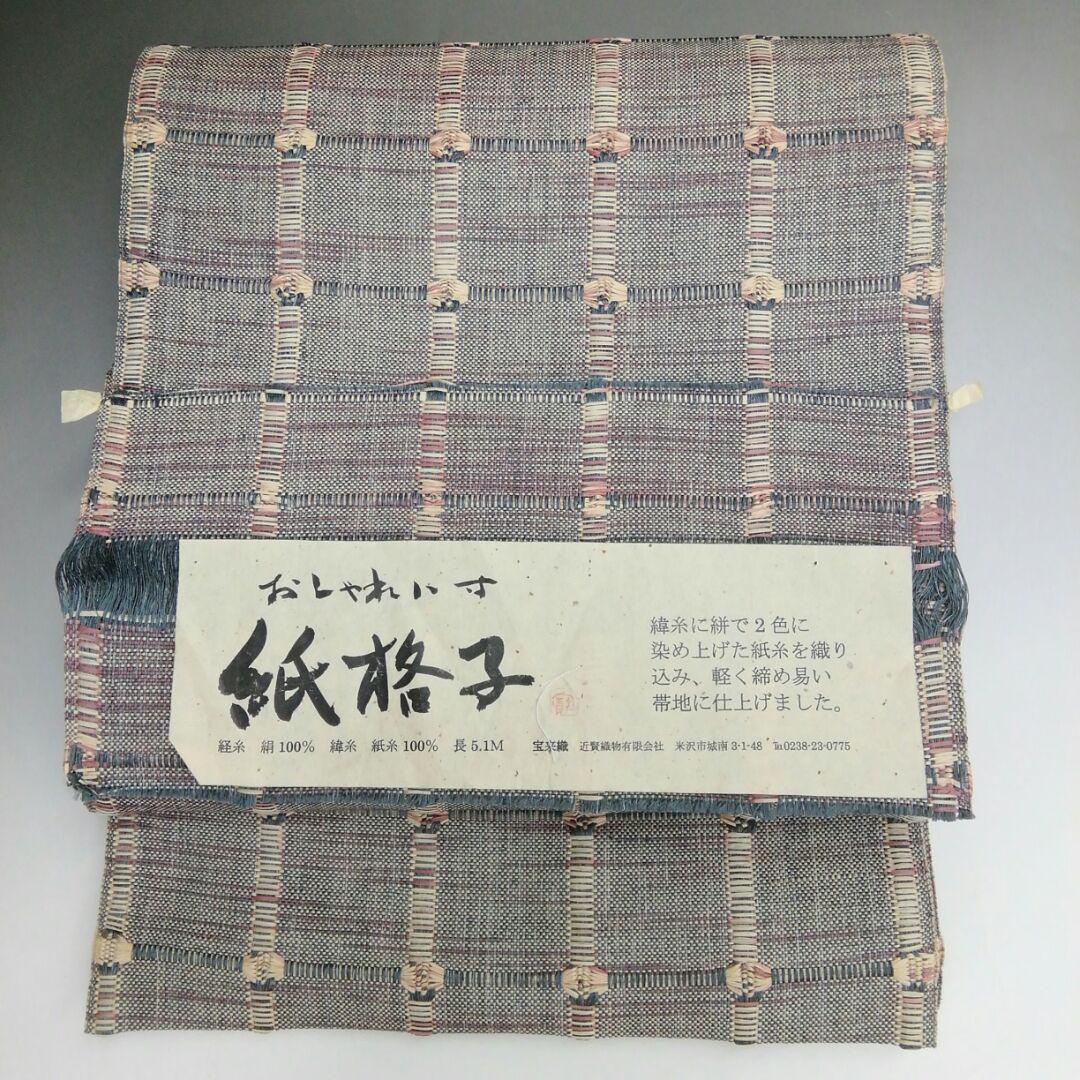 おしゃれ八寸
紙格子
緯糸に絣で2色に
染め上げた紙糸を織り
込み、軽く締め易い
帯地に仕上げました。
経糸 絹100% 緯糸 紙糸100% 長5.1M 宝来織 近賢織物有限会社 米沢市城南3-1-48 ℡0238-23-0775